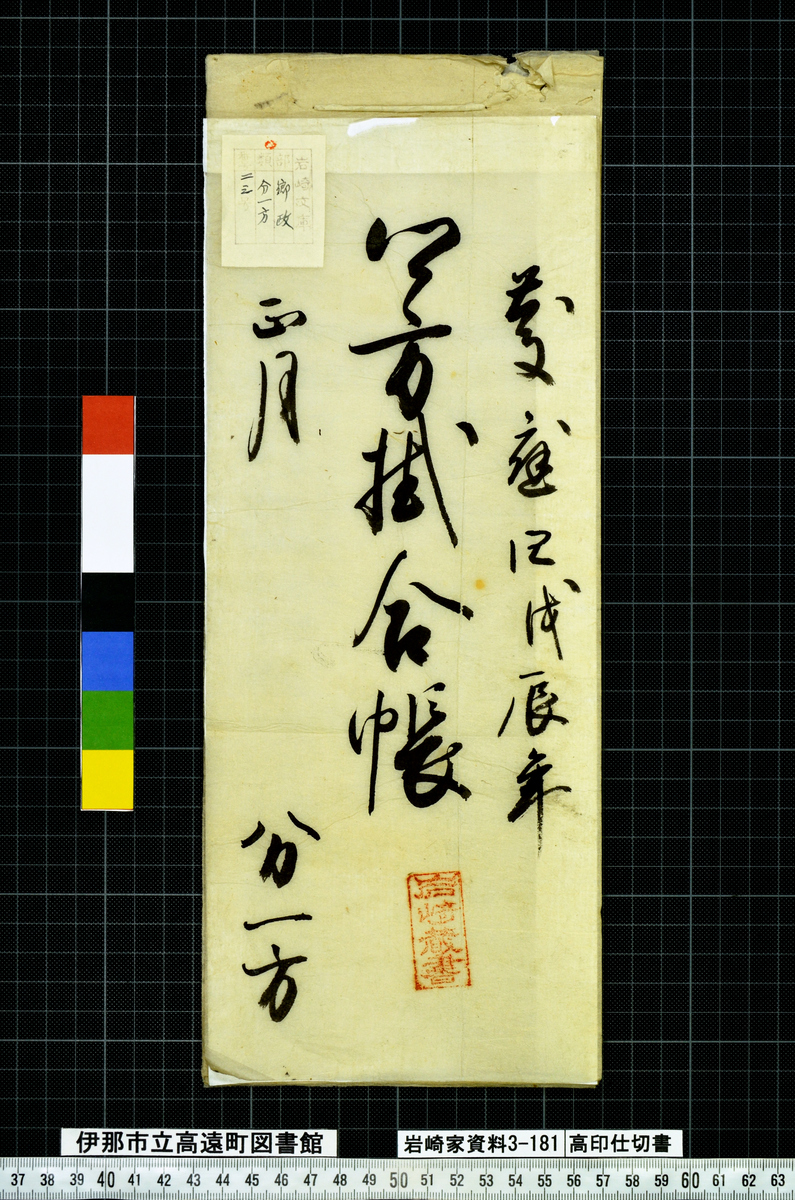 慶應四戊辰年
方掛合帳
正月
分一方
岩崎文庫
部 郷政
類 分一方
二三
岩崎蔵書
伊那市立高遠町図書館
岩崎家資料3-181 高印仕切書
37 38 39 40 41 42 43 44 45 46 47 48 49 50 51 52 53 54 55 56 57 58 59 60 61 62 63